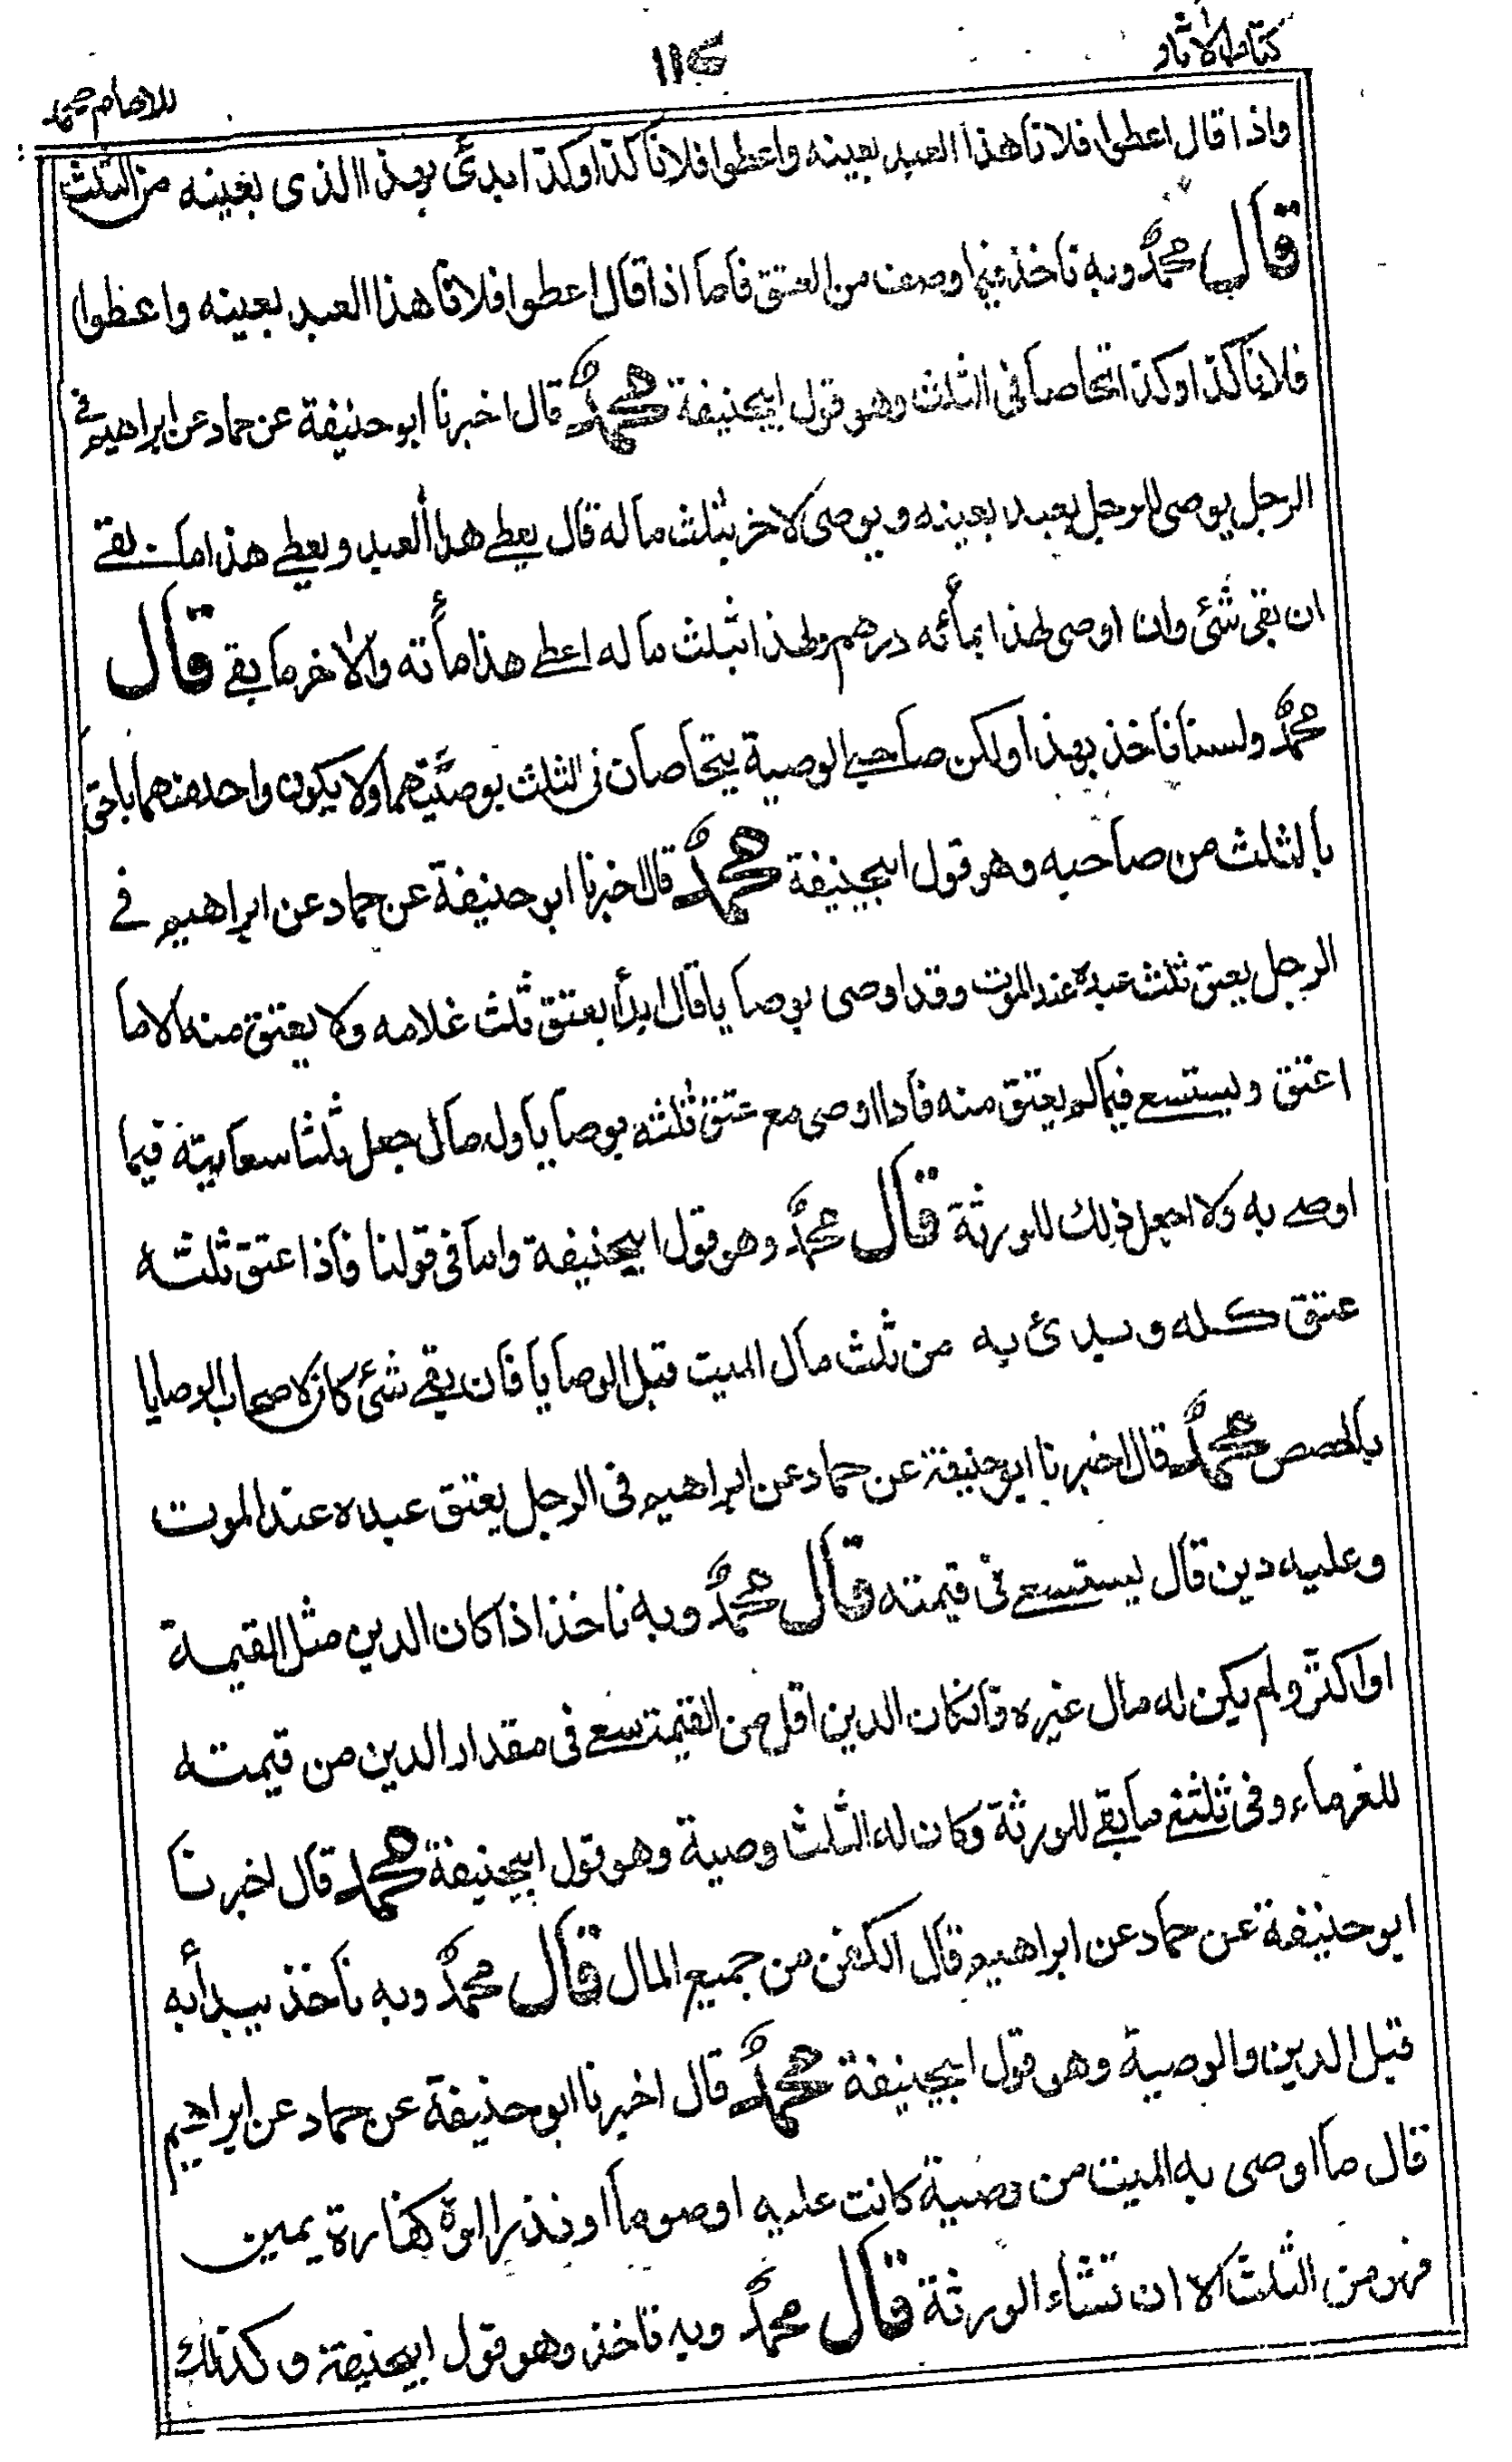 كتاب الآثار
١١٤
للامام محمد
واذا قال اعطوا فلانا هذا العبد بعينه واعطوا فلانا كذا وكذا بدئ بهذا الذى بعينه من الثلث
قال محمد وبه ناخذ فيما وصف من العتق فاما اذا قال اعطوا فلانا هذا العبد بعينه واعطوا
فلانا كذا وكذا تحاصا فى الثلث وهو قول ابيحنيفة محمد قال اخبرنا ابو حنيفة عن حماد عن ابراهيم فى
الرجل يوصى للرجل بعبد بعينه ويوصى لاخر بثلث ماله قال يعطى هذا العبد ويعطى هذا ما بقے
ان بقى شئ وان اوصى لهذا بمائه درهم ولهذا بثلث ماله اعطى هذا مأته والاخر ما بقے قال
محمد ولسنا ناخذ بهذا ولكن صاحبى الوصية يتحاصان فى الثلث بوصيتهما ولا يكون واحد منهما باحق
بالثلث من صاحبه وهو قول ابيحنيفة محمد قال اخبرنا ابو حنيفة عن حماد عن ابراهيم فے
الرجل يعتق ثلث عبده عند الموت وقد اوصى بوصايا قال ابدأ بعتق ثلث غلامه ولا يعتق منه الا ما
اعتق ويستسعے فيما لم يعتق منه فاذا اوصى مع عتق ثلثه بوصايا وله مال جعل ثلثا سعايته فيما
اوصے به ولا اجعل ذلك للورثة قال محمد وهو قول ابيحنيفة واما فى قولنا فاذا اعتق ثلثه
عتق كله وبدئ به من ثلث مال الميت قبل الوصايا فان بقے شئ كان لاصحاب الوصايا
بالحصص محمد قال اخبرنا ابو حنيفة عن حماد عن ابراهيم فى الرجل يعتق عبده عند الموت
وعليه دين قال يستسعے فى قيمته قال محمد وبه ناخذ اذا كان الدين مثل القيمة
او اكثر ولم يكن له مال غيره فانكان الدين اقل من القيمة سعے فى مقدار الدين من قيمته
للغرماء وفى ثلثى ما بقے للورثة وكان له الثلث وصية وهو قول ابيحنيفة محمد قال اخبرنا
ابو حنيفة عن حماد عن ابراهيم قال الكفن من جميع المال قال محمد وبه ناخذ يبدأ به
قبل الدين والوصية وهو قول ابيحنيفة محمد قال اخبرنا ابو حنيفة عن حماد عن ابراهيم
قال ما اوصى به الميت من وصية كانت عليه او صوما او نذرا او كفارة يمين
فهو من الثلث الا ان تشاء الورثة قال محمد وبه ناخذ وهو قول ابيحنيفة وكذلك